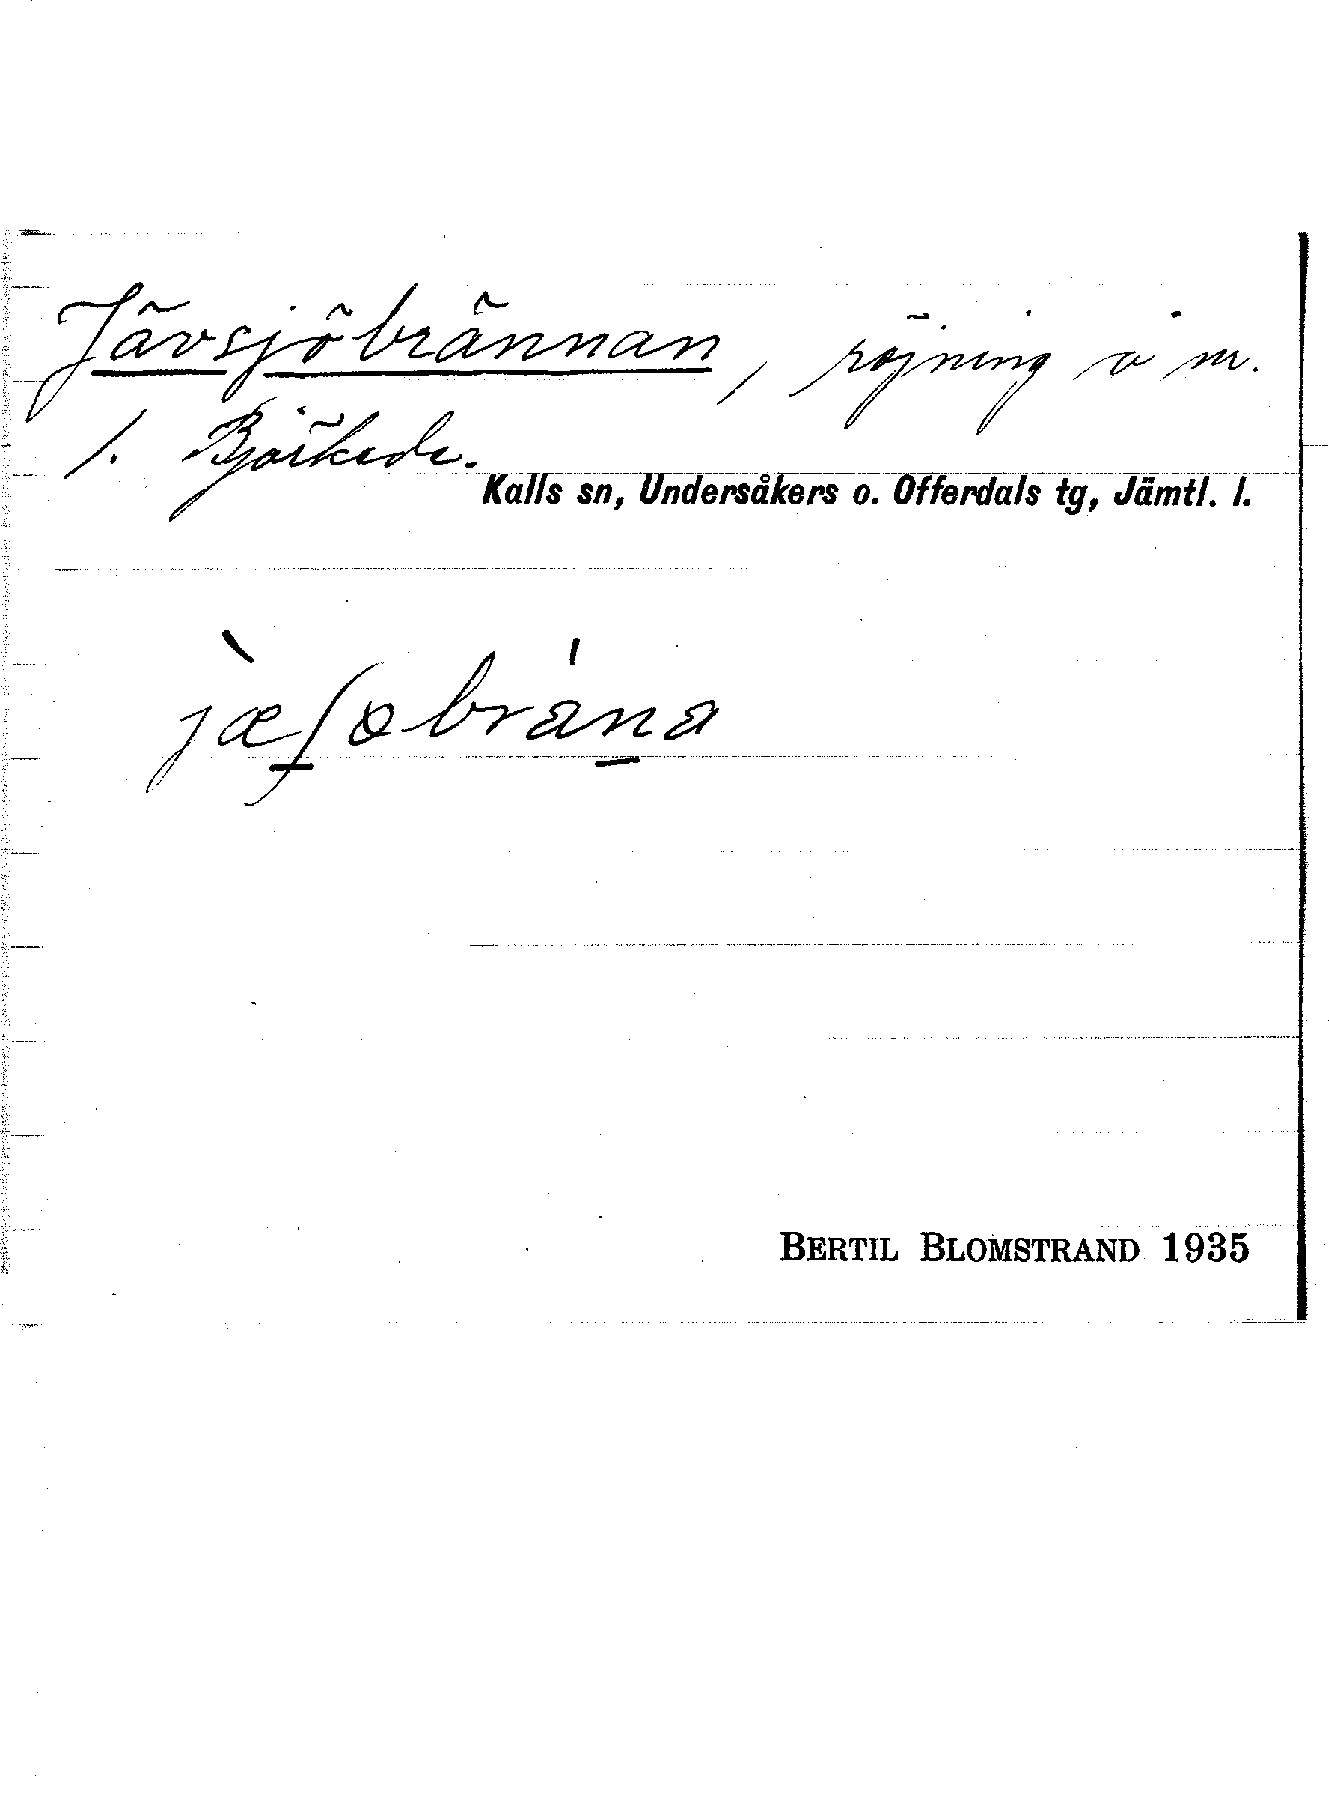 Jävsjöbrännan, röjning o m.
1. Björkede.
Kalls sn, Undersåkers o. Offerdals tg, Jämtl. l.
jæ̀ʃøbrána
BERTIL BLOMSTRAND 1935